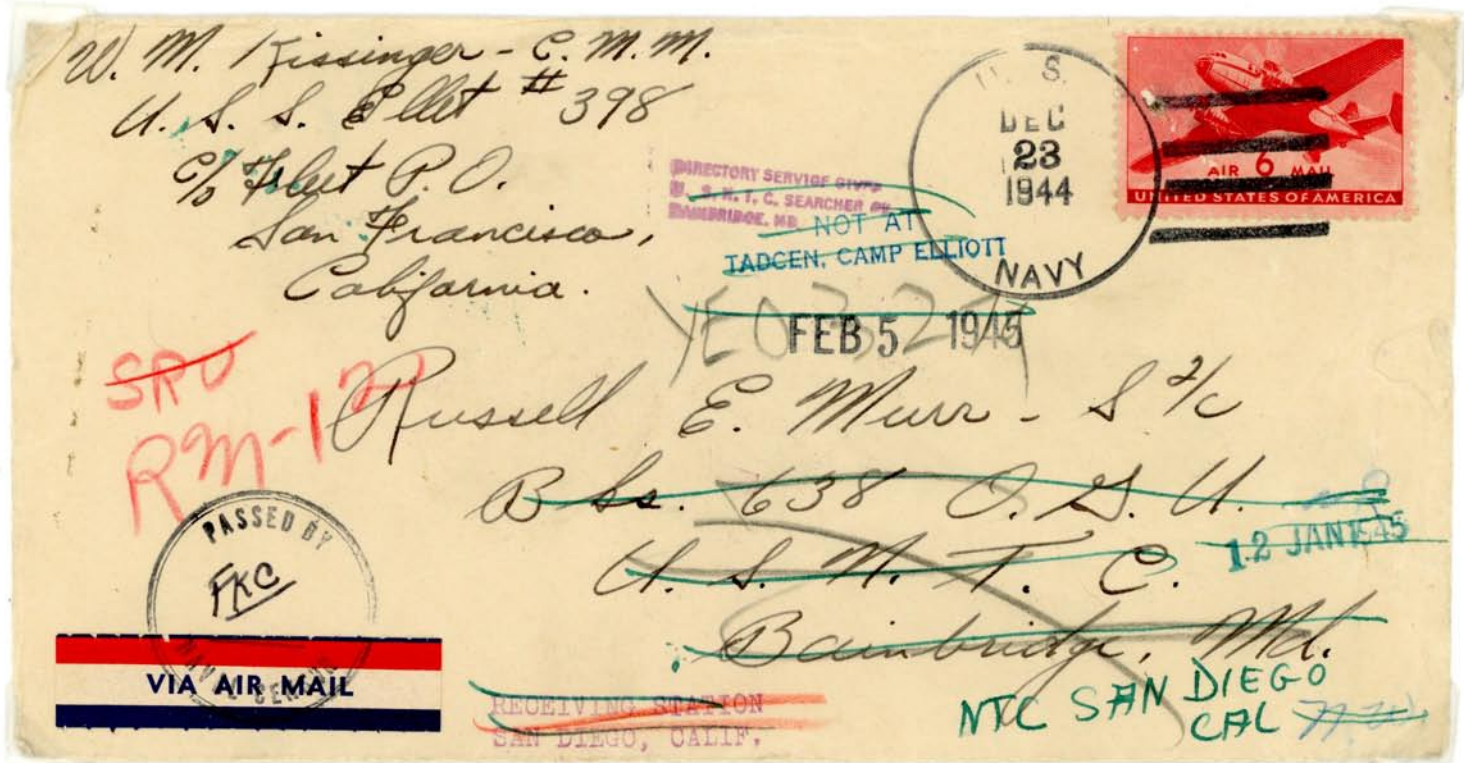 W. M. Kissinger - C. M. M.
U. S. S. Ellet # 398
c/o Fleet P. O.
San Francisco,
California.
U. S.
DEC
23
1944
NAVY
AIR 6 MAIL
UNITED STATES OF AMERICA
DIRECTORY SERVICE GIVEN
U. S. N. T. C. SEARCHER
BAINBRIDGE, MD
NOT AT
TADCEN, CAMP ELLIOTT
FEB 5 1945
SRU
RM-12
Russell E. Murr - S 2/c
B Ks. 638 O. G. U.
U. S. N. T. C.
Bainbridge, Md.
12 JAN 1945
PASSED BY
FKC
NAVAL CENSOR
VIA AIR MAIL
RECEIVING STATION
SAN DIEGO, CALIF.
NTC SAN DIEGO
CAL